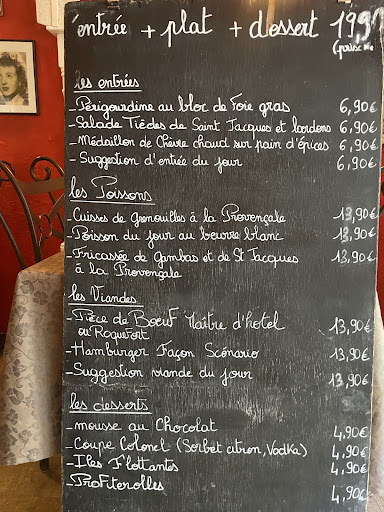 entrée + plat + dessert 19,9
les entrées
- Périgourdine au bloc de Foie gras 6,90€
- Salade Tièdes de Saint Jacques et lardons 6,90€
- Médaillon de Chèvre chaud sur pain d'épices 6,90€
- Suggestion d'entrée du jour 6,90€
les Poissons
- Cuisses de grenouilles à la Provençale 13,90€
- Poisson du jour au beurre blanc 13,90€
- Fricassée de Gambas et de St Jacques 13,90€
à la Provençale
les Viandes
- Pièce de Boeuf Maître d'hotel 13,90€
ou Roquefort
- Hamburger Façon Scénario 13,90€
- Suggestion viande du jour 13,90€
les desserts
- mousse au Chocolat 4,90€
- Coupe Colonel (Sorbet citron, Vodka) 4,90€
- Iles Flottantes 4,90€
- Profiterolles 4,90€